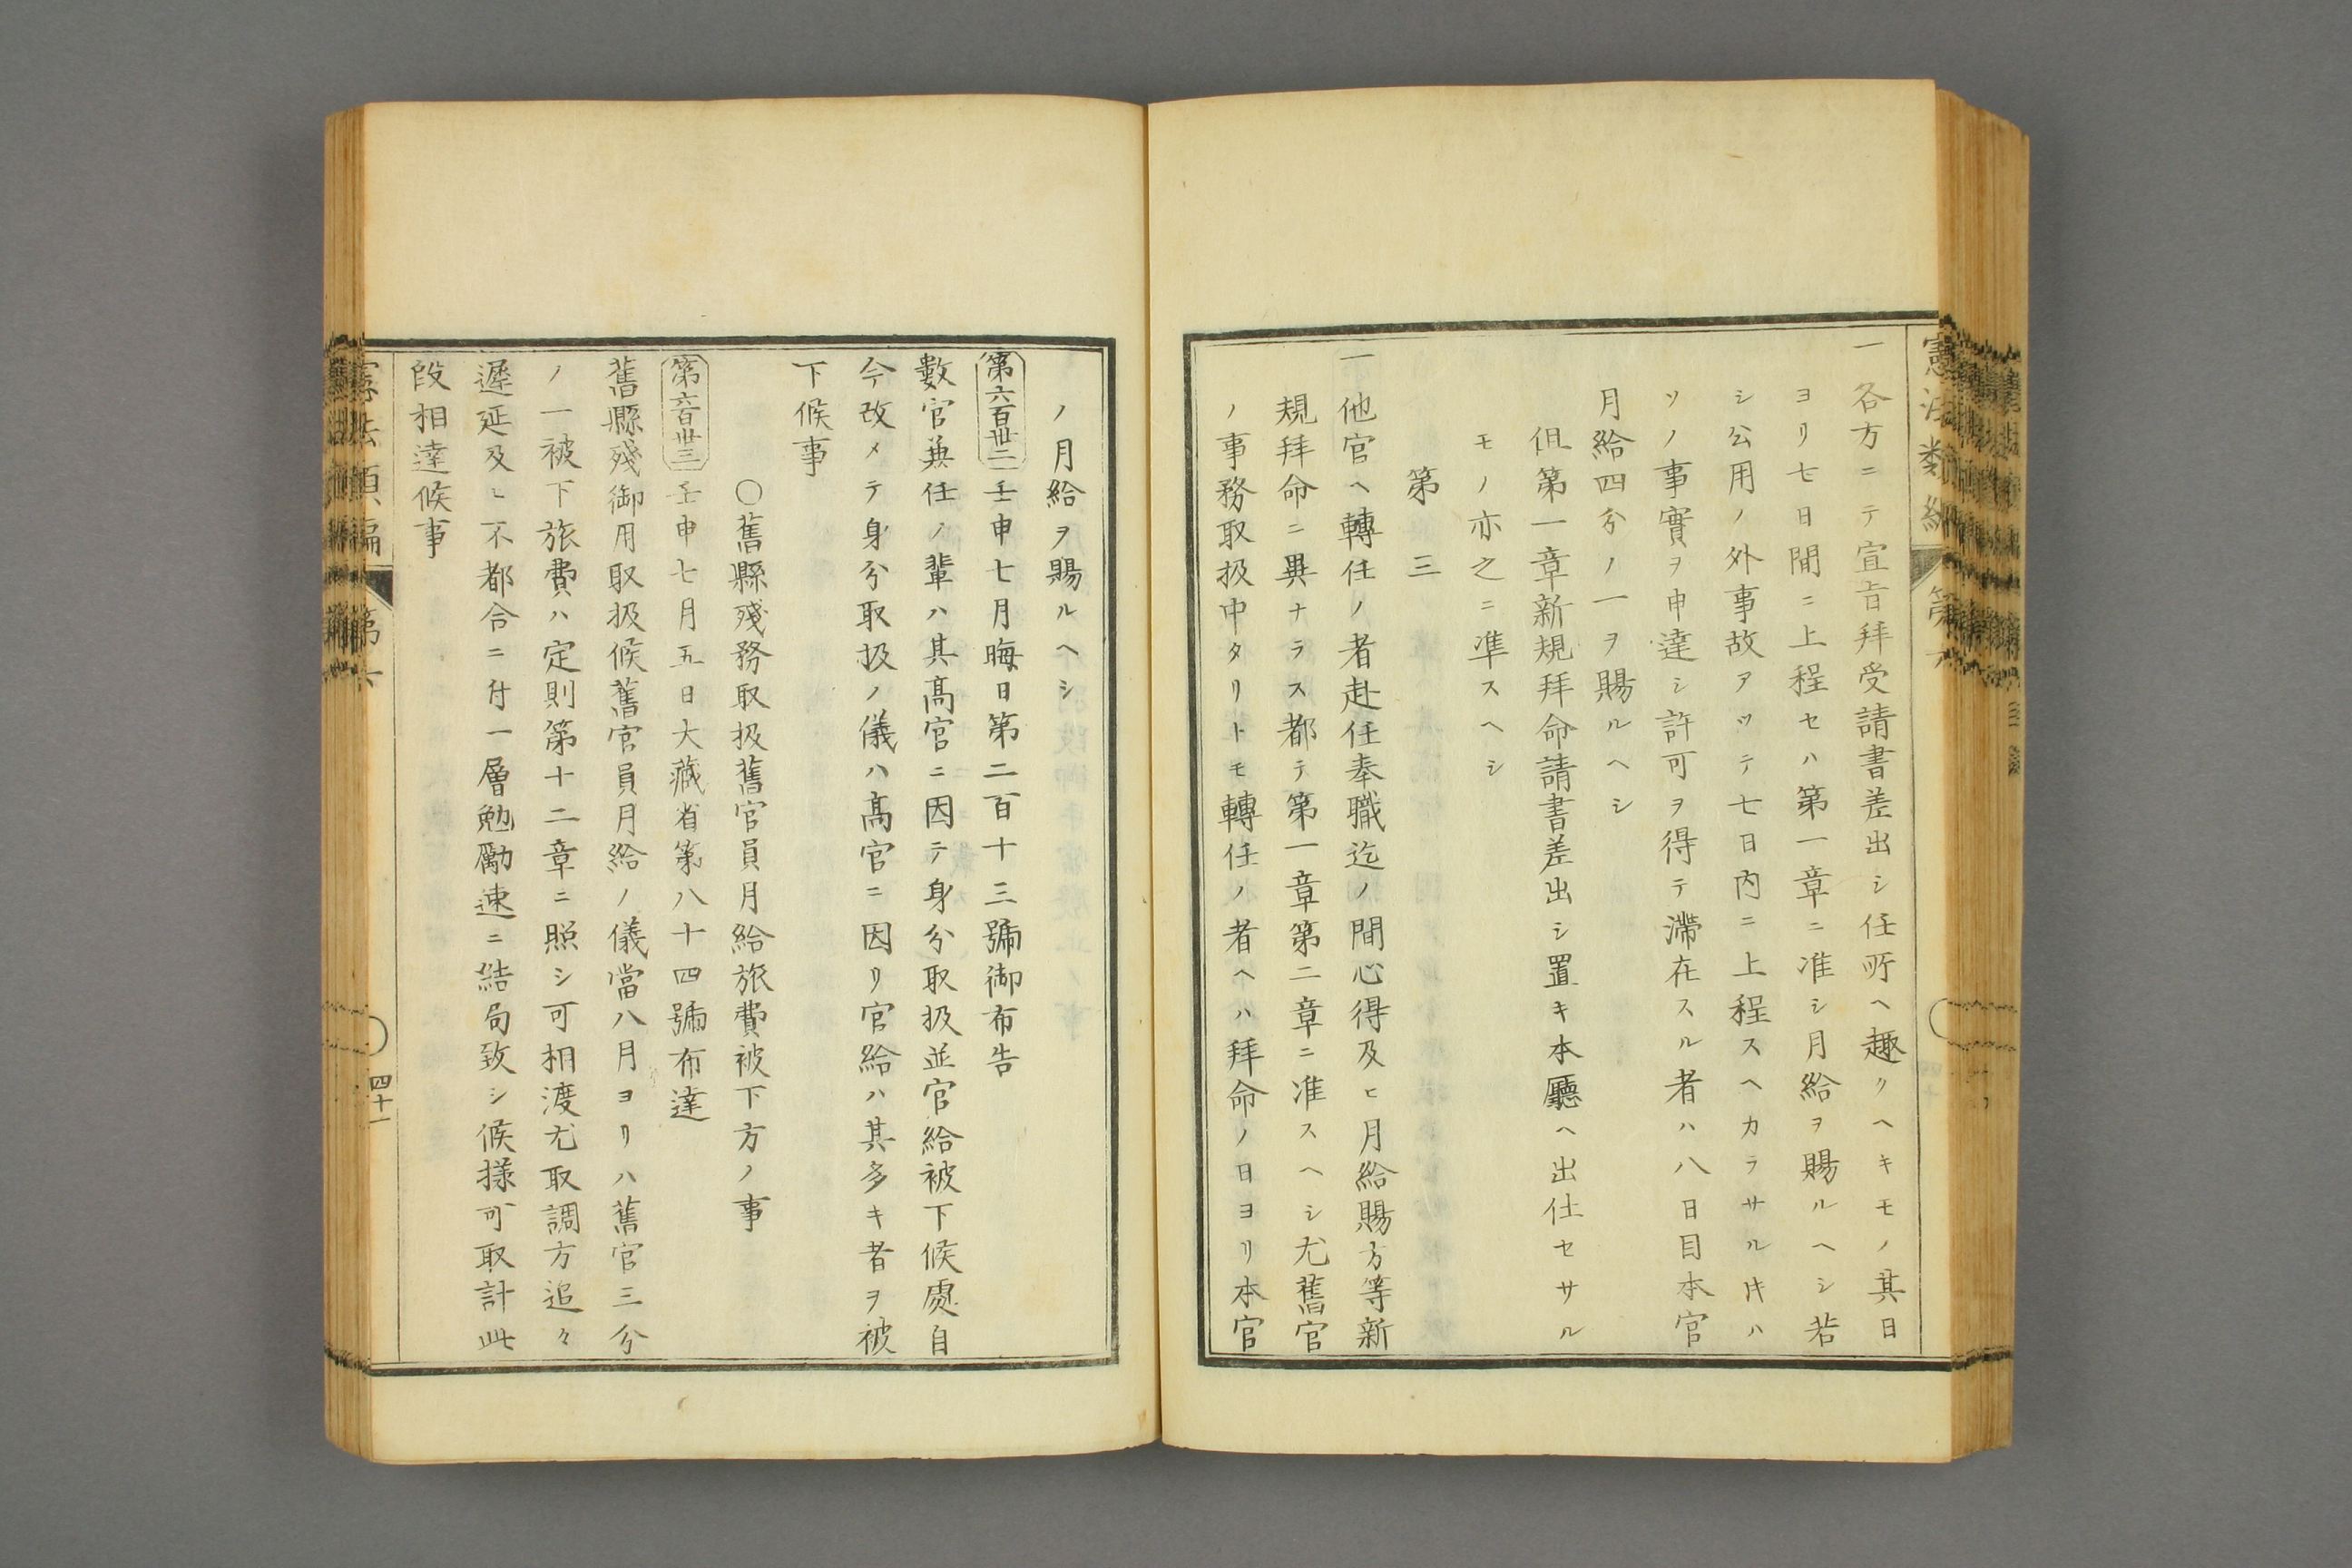 一各方ニテ宣旨拜受請書差出シ任所ヘ趣クヘキモノ其日
ヨリ七日間ニ上程セハ第一章ニ准シ月給ヲ賜ルヘシ若
シ公用ノ外事故アツテ七日内ニ上程スヘカラサル片ハ
ソノ事實ヲ申達シ許可ヲ得テ滯在スル者ハ八日目本官
月給四分ノ一ヲ賜ルヘシ
但第一章新規拜命請書差出シ置キ本廳ヘ出仕セサル
モノ亦之ニ準スヘシ
第三
一他官ヘ轉任ノ者赴任奉職迄ノ間心得及ヒ月給賜方等新
規拜命ニ異ナラス都テ第一章第二章ニ准スヘシ尤舊官
ノ事務取扱中タリトモ轉任ノ者ヘハ拜命ノ日ヨリ本官
ノ月給ヲ賜ルヘシ
第六百卅二壬申七月晦日第二百十三號御布告
數官兼任ノ輩ハ其高官ニ因テ身分取扱並官給被下候處自
今改メテ身分取扱ノ儀ハ高官ニ因リ官給ハ其多キ者ヲ被
下候事
○舊縣殘務取扱舊官員月給旅費被下方ノ事
第六百卅三壬申七月五日大藏省第八十四號布達
舊縣殘御用取扱候舊官員月給ノ儀當八月ヨリハ舊官三分
ノ一被下旅費ハ定則第十二章ニ照シ可相渡尤取調方追々
遲延及ヒ不都合ニ付一層勉勵速ニ結局致シ候樣可取計此
段相達候事
憲法類編
第六
四十一